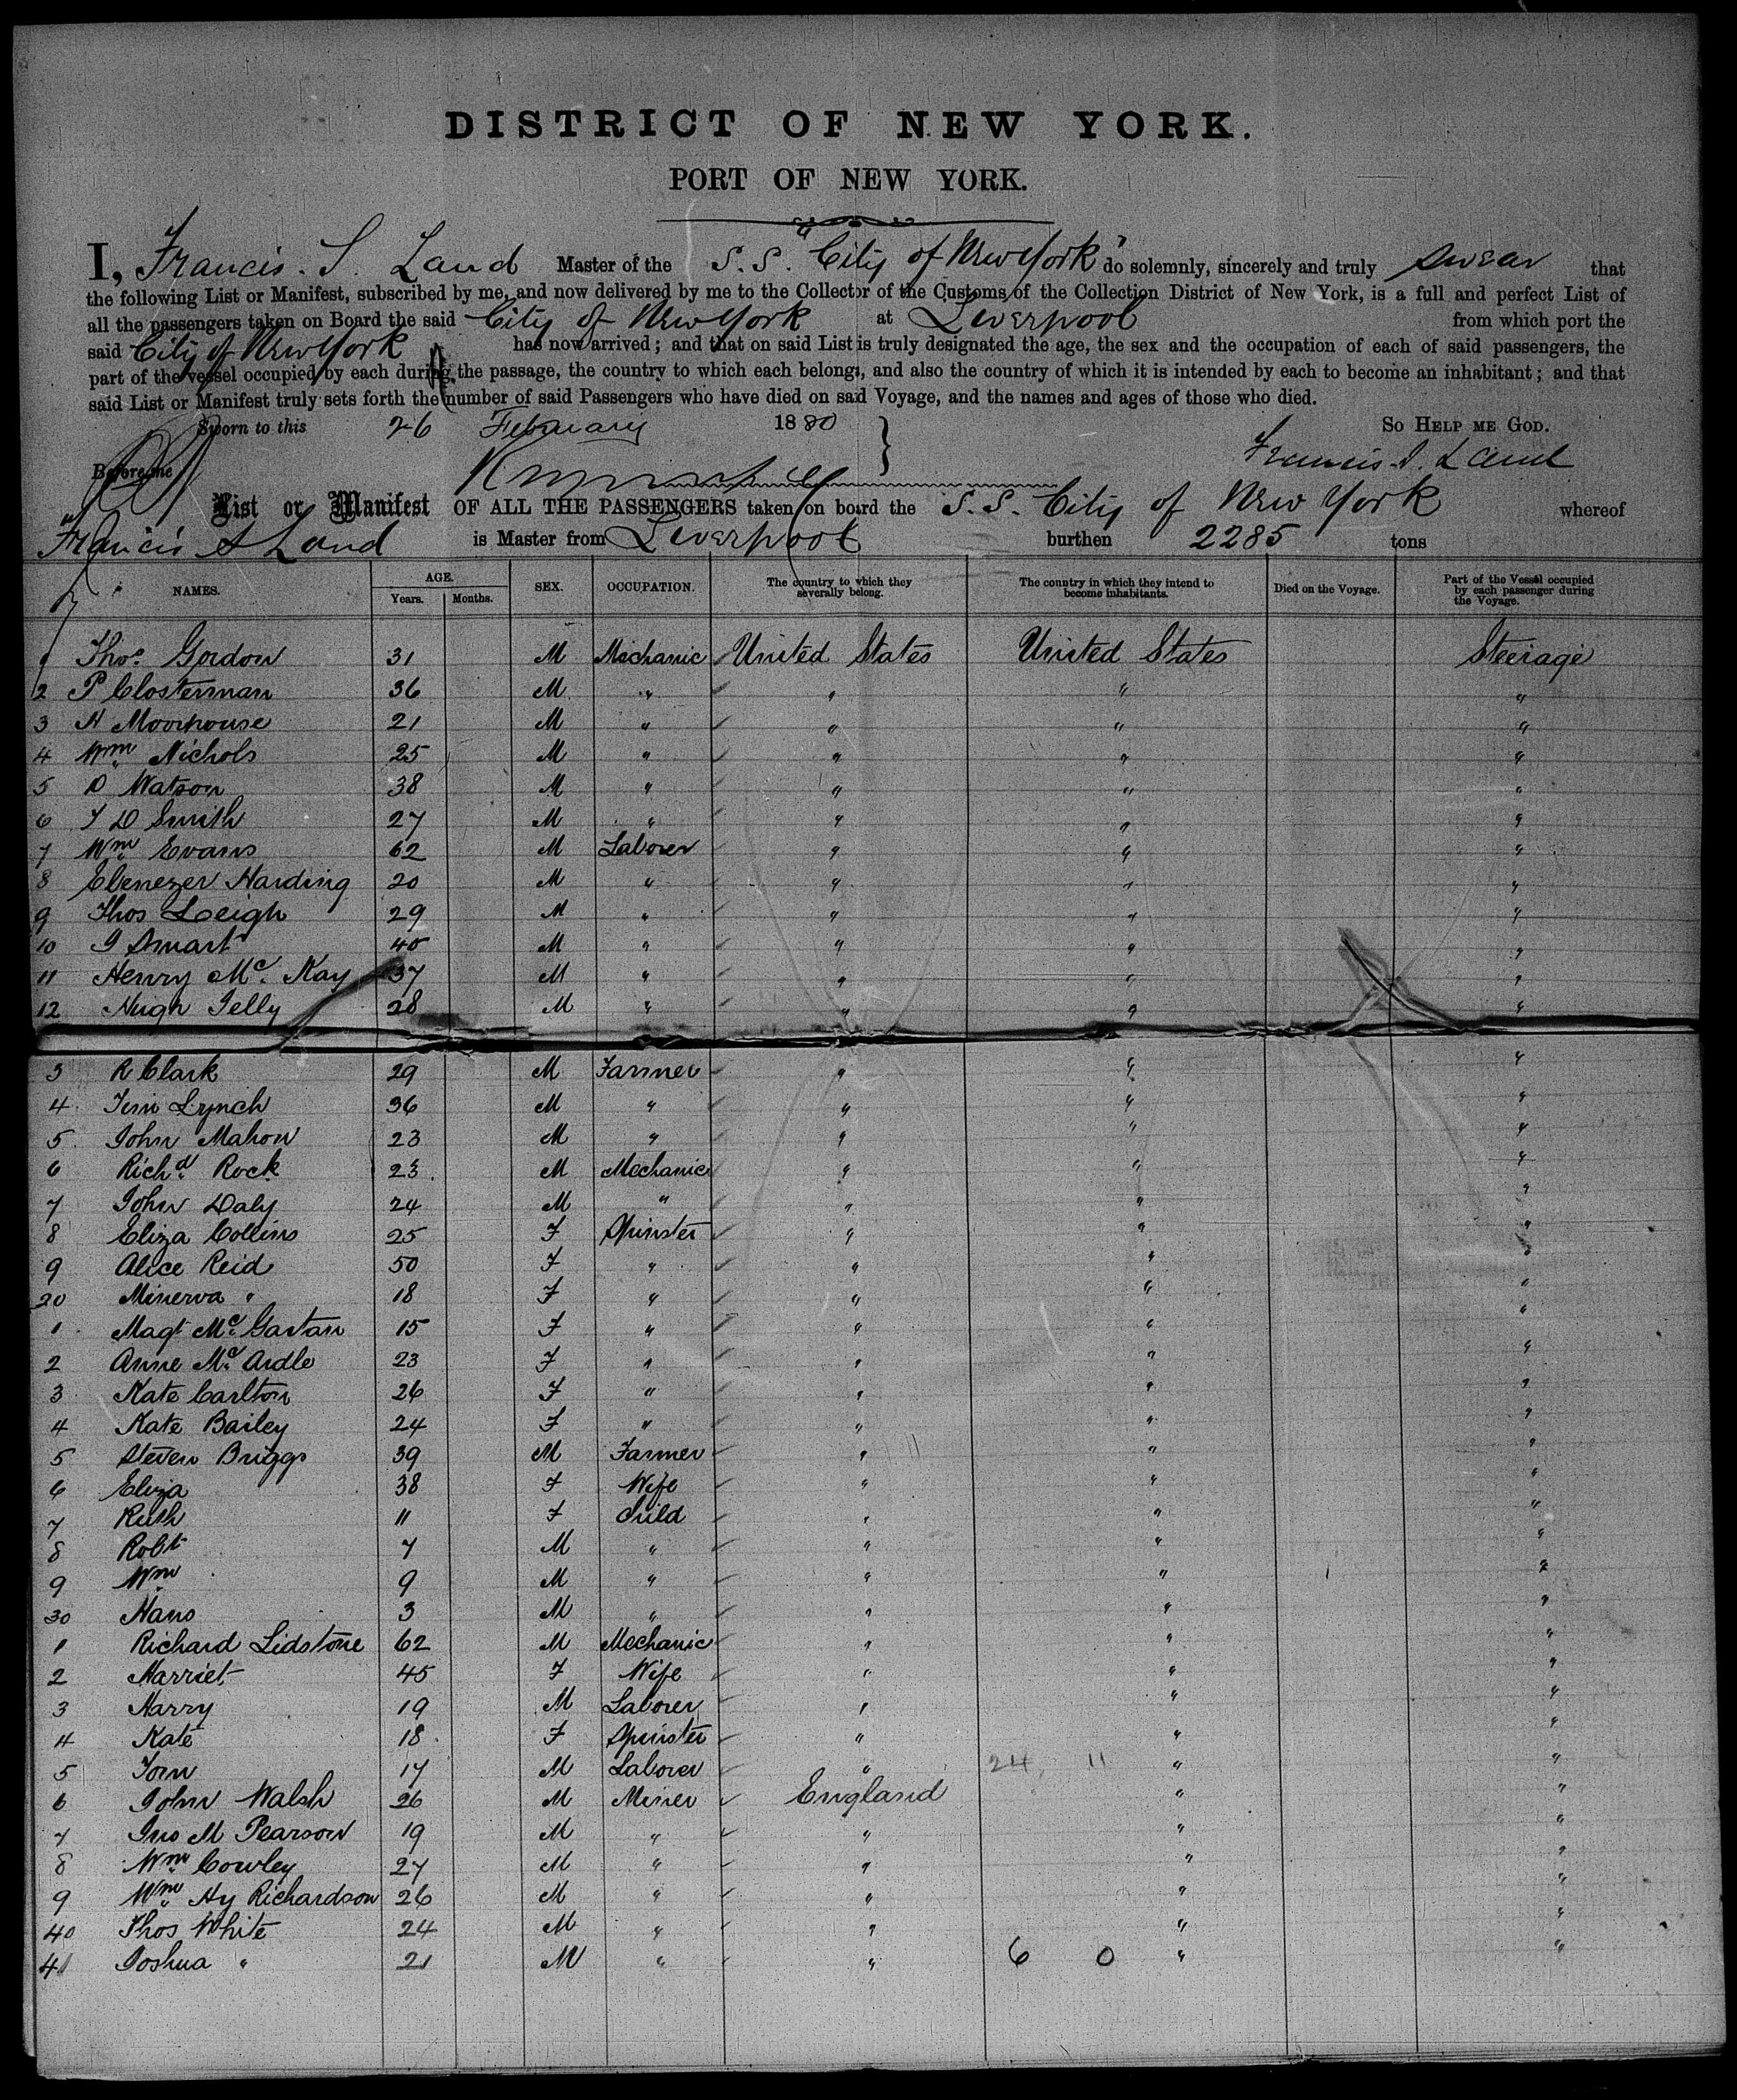 DISTRICT OF NEW YORK.
PORT OF NEW YORK.
I, Francis. S. Land Master of the S.S. "City of New York" do solemnly, sincerely and truly swear that
the following List or Manifest, subscribed by me, and now delivered by me to the Collector of the Customs of the Collection District of New York, is a full and perfect List of
all the passengers taken on Board the said City of New York at Liverpool from which port the
said City of New York has now arrived; and that on said List is truly designated the age, the sex and the occupation of each of said passengers, the
part of the vessel occupied by each during the passage, the country to which each belongs, and also the country of which it is intended by each to become an inhabitant; and that
said List or Manifest truly sets forth the number of said Passengers who have died on said Voyage, and the names and ages of those who died.
Sworn to this 26 February 1880 So HELP ME GOD.
Before me Francis S. Land
List or Manifest OF ALL THE PASSENGERS taken on board the S.S. City of New York whereof
Francis S Land is Master from Liverpool burthen 2285 tons
NAMES. AGE. Years. Months. SEX. OCCUPATION. The country to which they severally belong. The country in which they intend to become inhabitants. Died on the Voyage. Part of the Vessel occupied by each passenger during the Voyage.
1 Thos. Gordon 31 M Mechanic United States United States Steerage
2 P Closterman 36 M " " " "
3 H Moorhouse 21 M " " " "
4 Wm Nichols 25 M " " " "
5 D Watson 38 M " " " "
6 T D Smith 27 M " " " "
7 Wm Evans 62 M Laborer " " "
8 Ebenezer Harding 20 M " " " "
9 Thos Leigh 29 M " " " "
10 J Smart 40 M " " " "
11 Henry Mc Kay 37 M " " " "
12 Hugh Jelly 28 M " " " "
3 R Clark 29 M Farmer " " "
4 Jim Lynch 36 M " " " "
5 John Mahon 23 M " " " "
6 Richd Rock 23 M Mechanic " " "
7 John Daly 24 M " " " "
8 Eliza Collins 25 F Spinster " " "
9 Alice Reid 50 F " " " "
20 Minerva " 18 F " " " "
1 Magt Mc Gartan 15 F " " " "
2 Anne Mc Ardle 23 F " " " "
3 Kate Carlton 26 F " " " "
4 Kate Bailey 24 F " " " "
5 Steven Briggs 39 M Farmer " " "
6 Eliza 38 F Wife " " "
7 Ruth 11 F Child " " "
8 Robt 7 M " " " "
9 Wm 9 M " " " "
30 Hans 3 M " " " "
1 Richard Lidstone 62 M Mechanic " " "
2 Harriet 45 F Wife " " "
3 Harry 19 M Laborer " " "
4 Kate 18 F Spinster " " "
5 Tom 17 M Laborer " 24, 11 " "
6 John Walsh 26 M Miner England " "
7 Jno M Pearson 19 M " " " "
8 Wm Cowley 27 M " " " "
9 Wm Hy Richardson 26 M " " " "
40 Thos White 24 M " " " "
41 Joshua " 21 M " " 6 0 " "